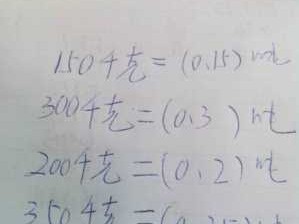 150千克=(0.15)吨
300千克=(0.3 )吨
200千克=(0.2)吨
350千克=(0.